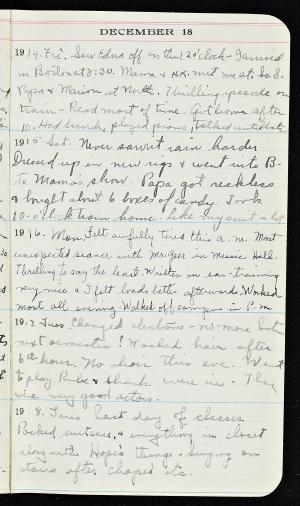 DECEMBER 18
1914. Fri. Saw Edna off on the 12 o'clock - I arrived
in Boston at 7:30. Mama & met me at So. S.
Papa & Marion at North. Thrilling episode on
train - Read most of time. Got home after
10. Had lunch, played piano, talked until late
1915 Sat. Never saw it rain harder
Dressed up in new rigs & went into B-
to Mama's show. Papa got reckless
& bought about 6 boxes of candy. Took
10-o'clock train home - like my suit a lot
1916. Mon. Felt awfully tired this a.m. Most
unexpected seance with Mr. Geer in Music Hall.
Thrilling to say the least. Written in ear-training
very nice & I felt loads better afterwards. Worked
most all evening. Walked off campus in P.m
1917. Tues. Changed elections - no more
next semester! Washed hair after
6th hour. No choir this eve. Went
to play Rube & were in. They
were very good actors.
1918. Last day of classes.
Packed suitcase, & everything in closet
along with Hope's things. Singing on
stairs after Chapel etc.